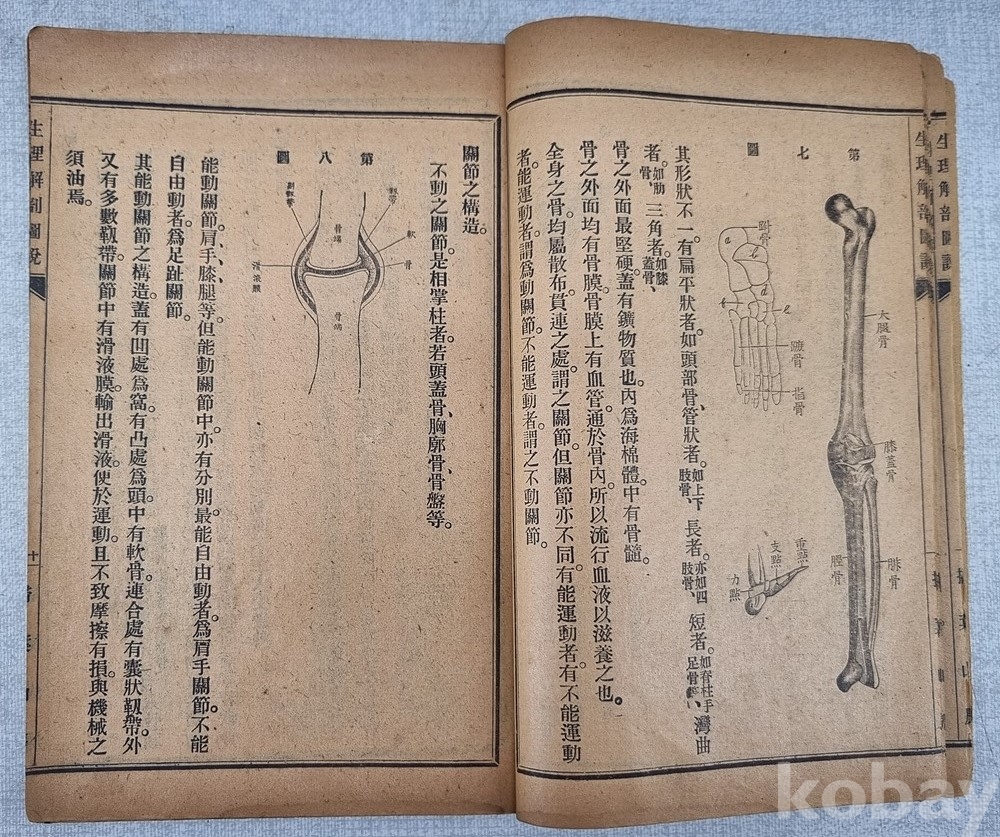 第七圖
大腿骨
膝蓋骨
腓骨
脛骨
跗骨
a
b
d
e
蹠骨
指骨
重點
支點
力點
其形狀不一。有扁平狀者。如頭部骨、管狀者。如上下肢骨、長者。亦如四肢骨、短者。如脊柱手足骨、灣曲
者。如肋骨、三角者。如膝蓋骨、
骨之外面最堅硬。蓋有鑛物質也。內爲海棉體。中有骨髓。
骨之外面均有骨膜。骨膜上有血管。通於骨內。所以流行血液以滋養之也。
全身之骨。均屬散布。貫連之處。謂之關節。但關節亦不同。有能運動者。有不能運動
者。能運動者。謂爲動關節。不能運動者。謂之不動關節。
關節之構造。
不動之關節。是相掌柱者。若頭蓋骨、胸廓骨、骨盤等。
第八圖
靱帶
副靱帶
骨端
軟
骨
滑液膜
骨端
能動關節。肩、手、膝、腿等。但能動關節中。亦有分別。最能自由動者。爲肩手關節。不能
自由動者。爲足趾關節。
其能動關節之構造。蓋有凹處爲窩。有凸處爲頭。中有軟骨。連合處有囊狀靱帶。外
又有多數靱帶。關節中有滑液膜。輸出滑液。便於運動。且不致摩擦有損。與機械之
須油焉。
生理解剖圖說
十
生理解剖圖說
掃葉山房
kobay